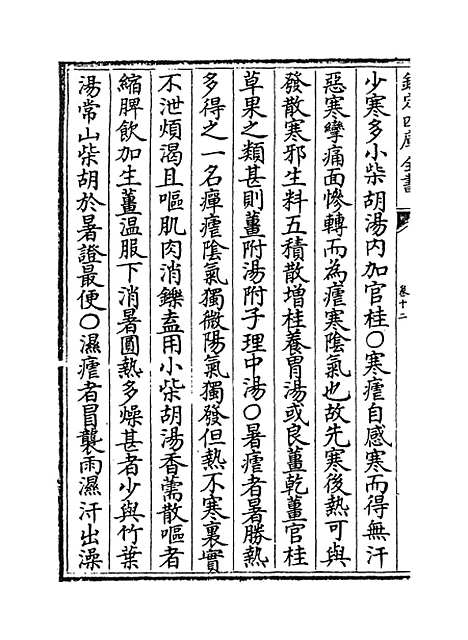 欽定四庫全書
卷十二
少寒多小柴胡湯内加官桂〇寒瘧自感寒而得無汗
惡寒攣痛面慘轉而為瘧寒陰氣也故先寒後熱可與
發散寒邪生料五積散增桂養胃湯或良薑乾薑官桂
草果之類甚則薑附湯附子理中湯〇暑瘧者暑勝熱
多得之一名癉瘧陰氣獨微陽氣獨發但熱不寒裏實
不泄煩渴且嘔肌肉消鑠盍用小柴胡湯香薷散嘔者
縮脾飲加生薑温服下消暑圓熱多燥甚者少與竹葉
湯常山柴胡於暑證最便〇濕瘧者冒襲雨濕汗出澡